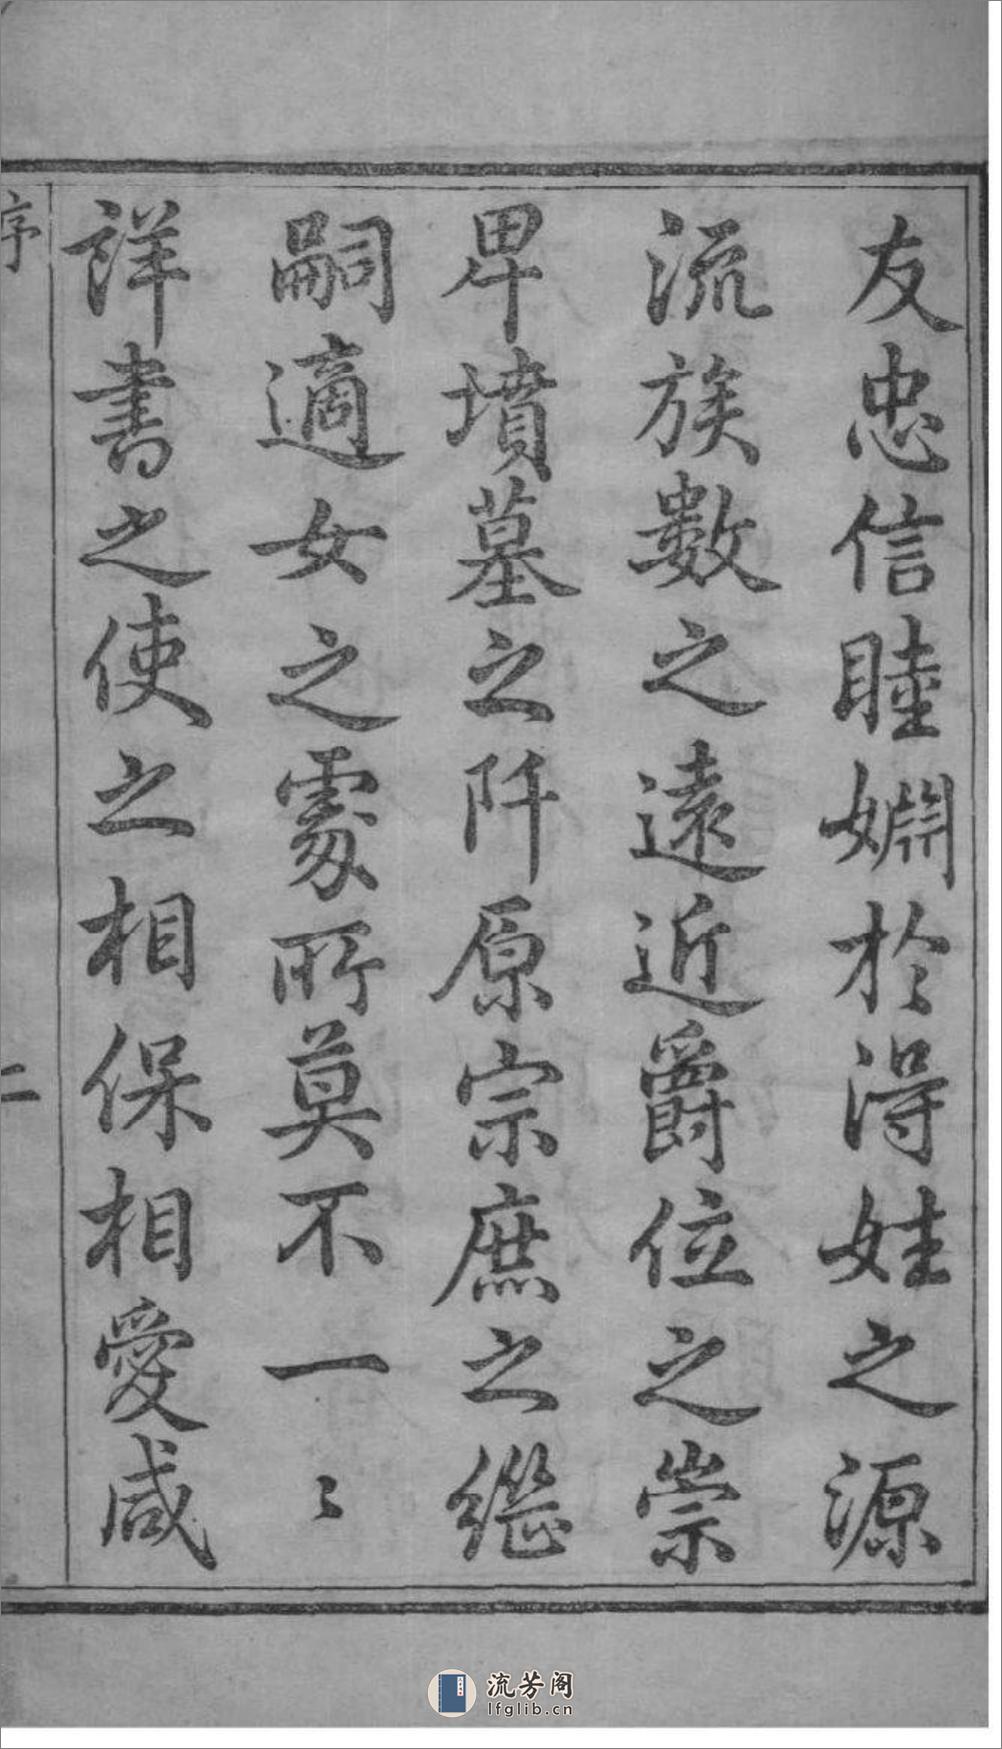 友忠信睦嫺於淂姓之源
流族數之遠近爵位之崇
畀墳墓之阡原宗庶之継
嗣適女之䖏所莫不一〻
詳書之使之相保相愛咸
序
二
流芳阁
lfglib.cn